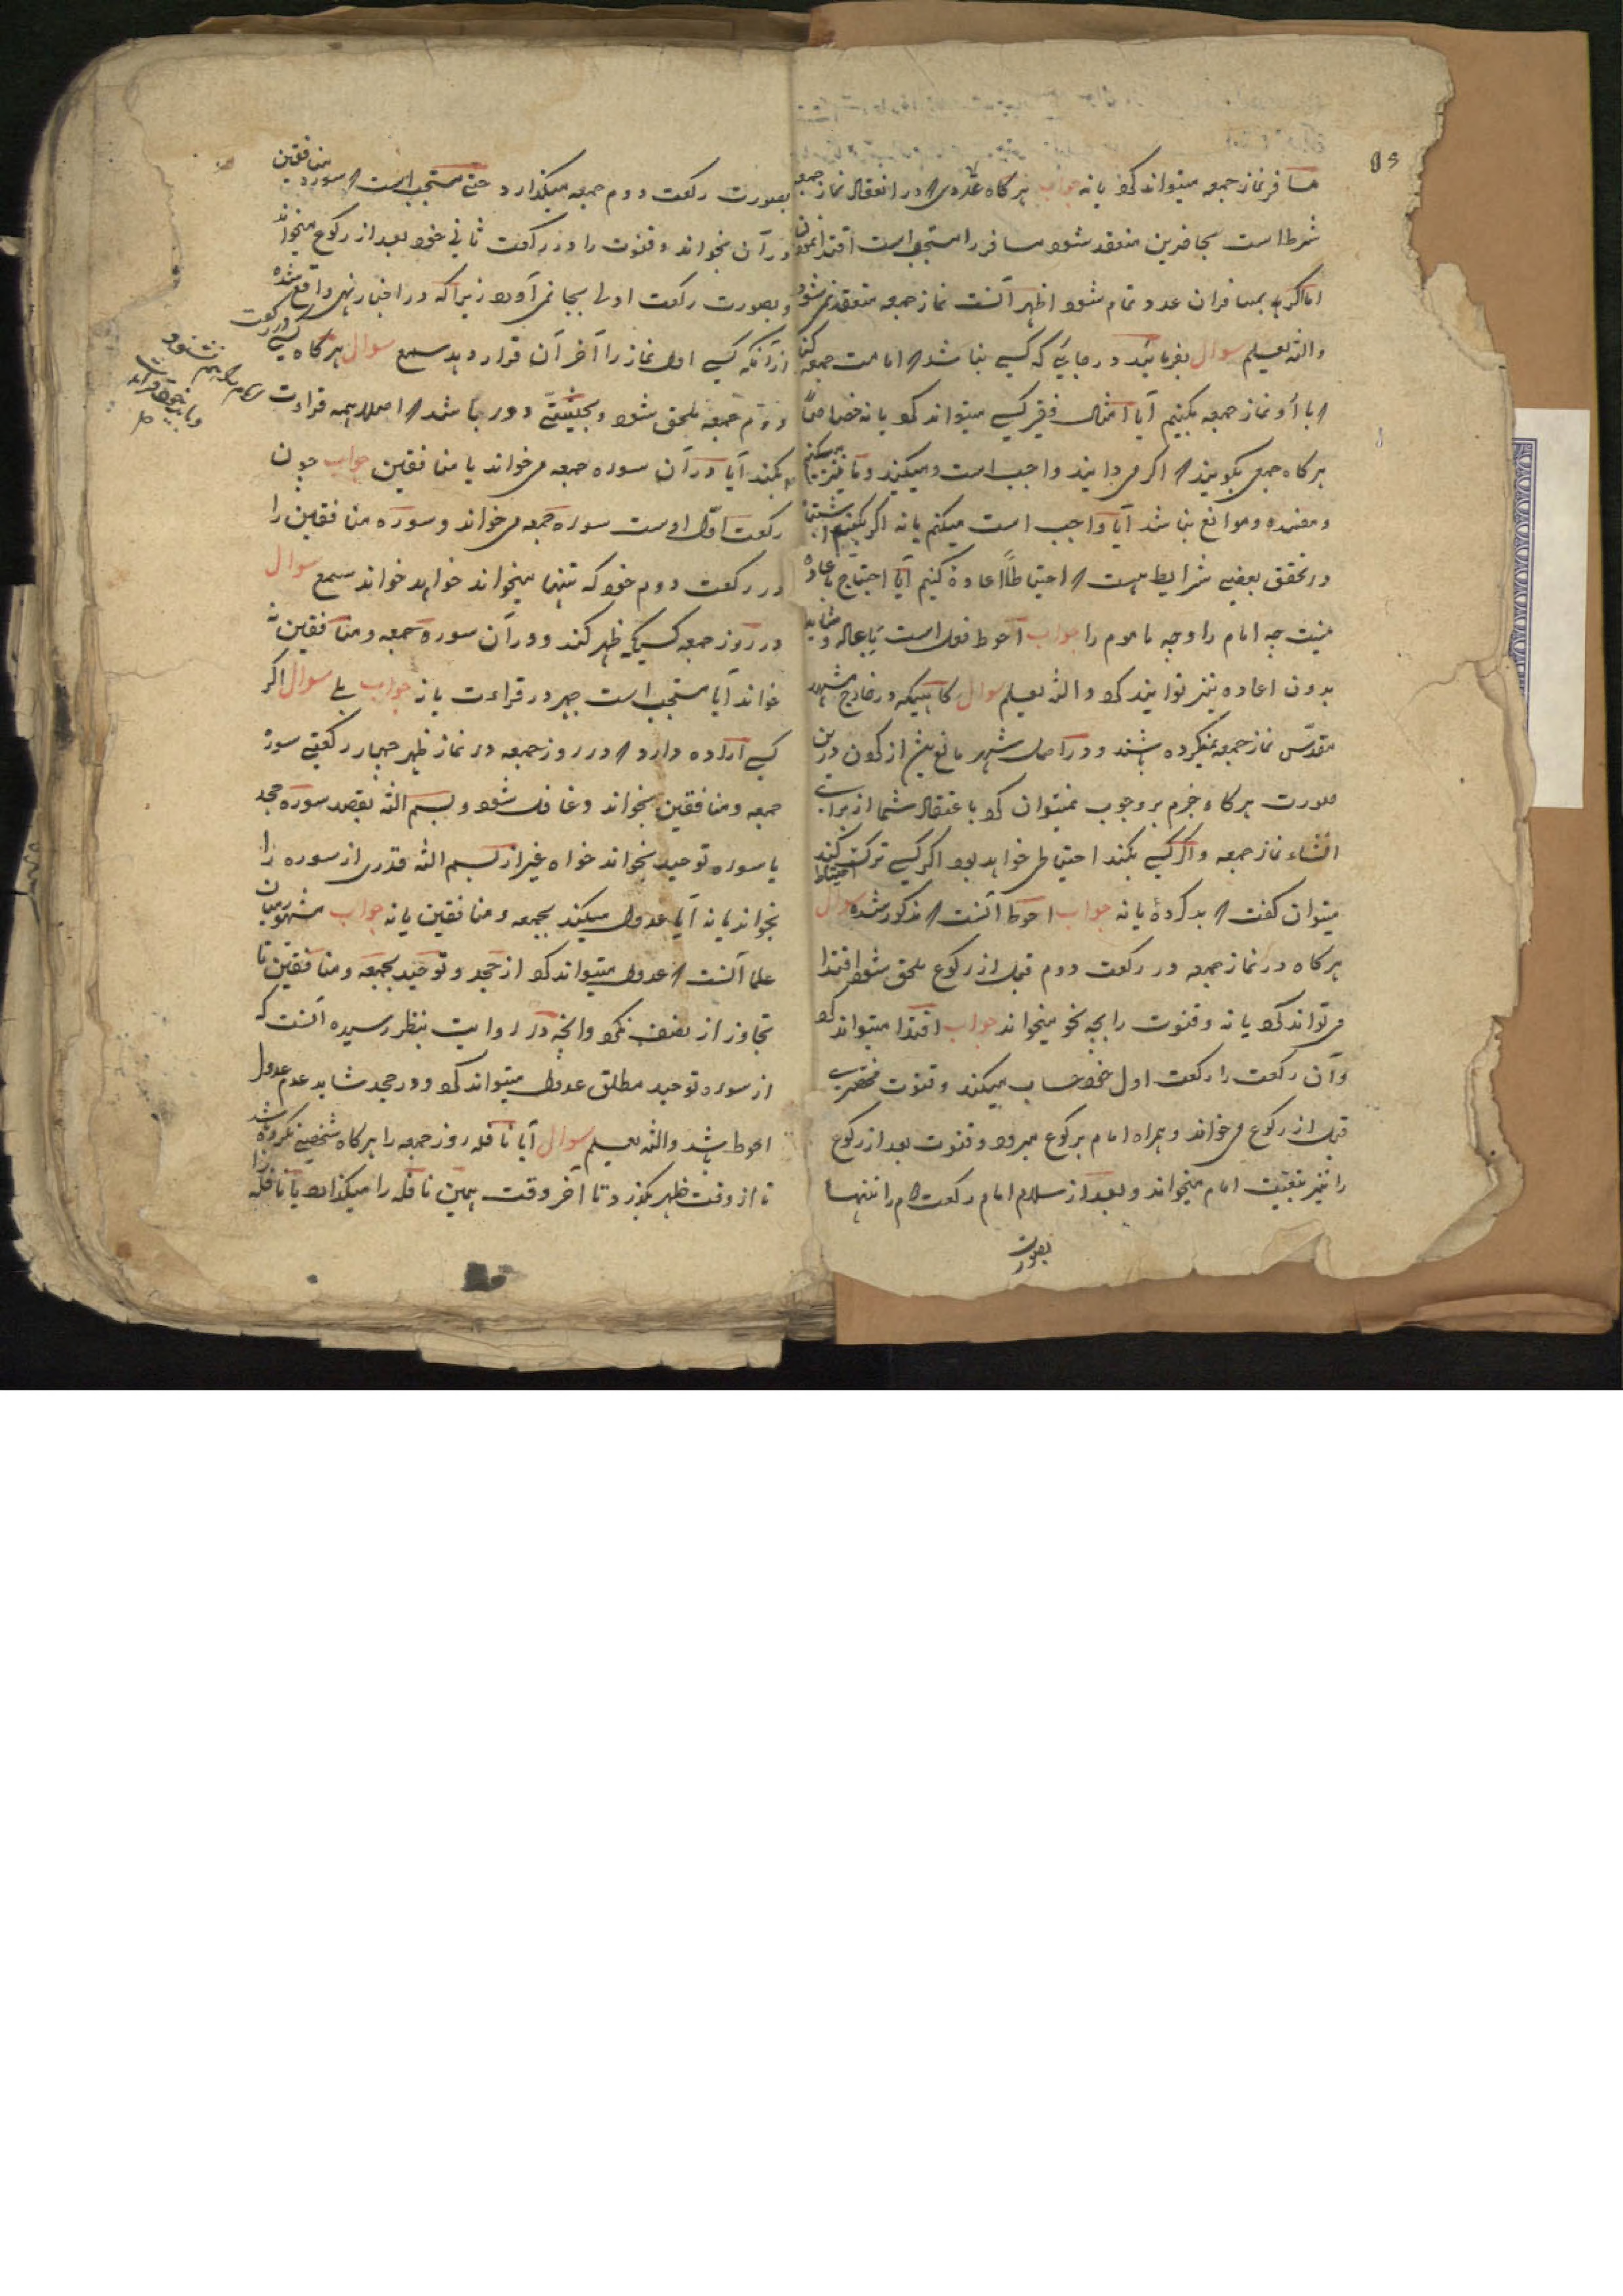 مسافر نماز جمعه میتواند کرد یا نه جواب هرگاه عددی که در انعقاد نماز جمعه
شرط است بحاضرین منعقد شود مسافر را مستحب است اقتدا نمودن
اما اگر بمسافران عدد تمام شود اظهر آنست نماز جمعه منعقد نمی شود
والله یعلم سوال بفرمائید در جایی که کسی نباشد که امامت جمعه کند
که با او نماز جمعه بکنیم آیا امثال فقیر کسی میتواند کرد یا نه خصاصاً
هرگاه جمعی بگویند که اگر می دانید واجب است ومیکنید وما نیز
ومفسده وموانع نباشد آیا واجب است میکنم یا نه اگر بکنیم
در تحقق بعضی شرایط هست که احتیاطاً اعاده کنیم آیا احتیاج باعاده
نیست چه امام را وچه ماموم را جواب احوط فعل است
بدون اعاده نیز توانید کرد والله یعلم سوال کاهیکه در خارج مشهد
مقدّس نماز جمعه میکرده باشند ودر اصل شهر مانع بیش از کون درین
صورت هرگاه جزم بر وجوب نمیتوان کرد باعتقاد شما از برای
انشاء نماز جمعه واگر کسی بکند احتیاطی خواهد بود اگر کسی ترک کند احتیاطا
میتوان گفت که بد کرده یا نه جواب احوط آنست که مذکور شده سوال
هرگاه در نماز جمعه در رکعت دوم قبل از رکوع ملحق شود اقتدا
می تواند کرد یا نه وقنوت را بچه نحو میخواند جواب اقتدا میتواند کرد
وآن رکعت را رکعت اول خود حساب میکند وقنوت مختصری
قبل از رکوع می خواند وهمراه امام برکوع میرود وقنوت بعد از رکوع
را نیز بتبعیت امام میخواند وبعد از سلام امام رکعت دوم را تنها
بصورت
بصورت رکعت دوم جمعه میگذارد حتی مستحب است که سوره منافقین
در آن بخواند وقنوت را در رکعت ثانی خود بعد از رکوع میخواند
وبصورت رکعت اولی بجا نمی آورد زیرا که در اخبار نهی واقع شده
از آنکه کسی اول نماز را آخر آن قرار دهد سمع سوال هرگاه کسی در رکعت
دوّم جمعه ملحق شود وبحیثیتی دور باشد که اصلا همهمه قراءت
امام را هم نشنود
وباید خود قراءت
بکند آیا در آن سوره جمعه می خواند یا منافقین جواب چون
رکعت اوّل اوست سوره جمعه می خواند وسوره منافقین را
در رکعت دوم خود که تنها میخواند خواهد خواند سمع سوال
در روز جمعه کسیکه ظهر کند ودر آن سوره جمعه ومنافقین نه
خواند آیا مستحب است جهر در قراءت یا نه جواب بلی سوال اگر
کسی اراده دارد که در روز جمعه در نماز ظهر چهار رکعتی سوره
جمعه ومنافقین بخواند وغافل شود وبسم الله بقصد سوره جحد
یا سوره توحید بخواند خواه غیر از بسم الله قدری از سوره را
بخواند یا نه آیا عدول میکند بجمعه ومنافقین یا نه جواب مشهور میان
علما آنست که عدول میتواند کرد از جحد وتوحید بجمعه ومنافقین تا
تجاوز از نصف نکرد وانچه در روایت بنظر رسیده آنست که
از سوره توحید مطلق عدول میتواند کرد ودر جحد شاید عدم عدول
احوط باشد والله یعلم سوال آیا نافله روز جمعه را هرگاه شخصی نکرده باشد
تا از وقت ظهر بگذرد تا آخر وقت همین نافله را میگذارد یا نافله